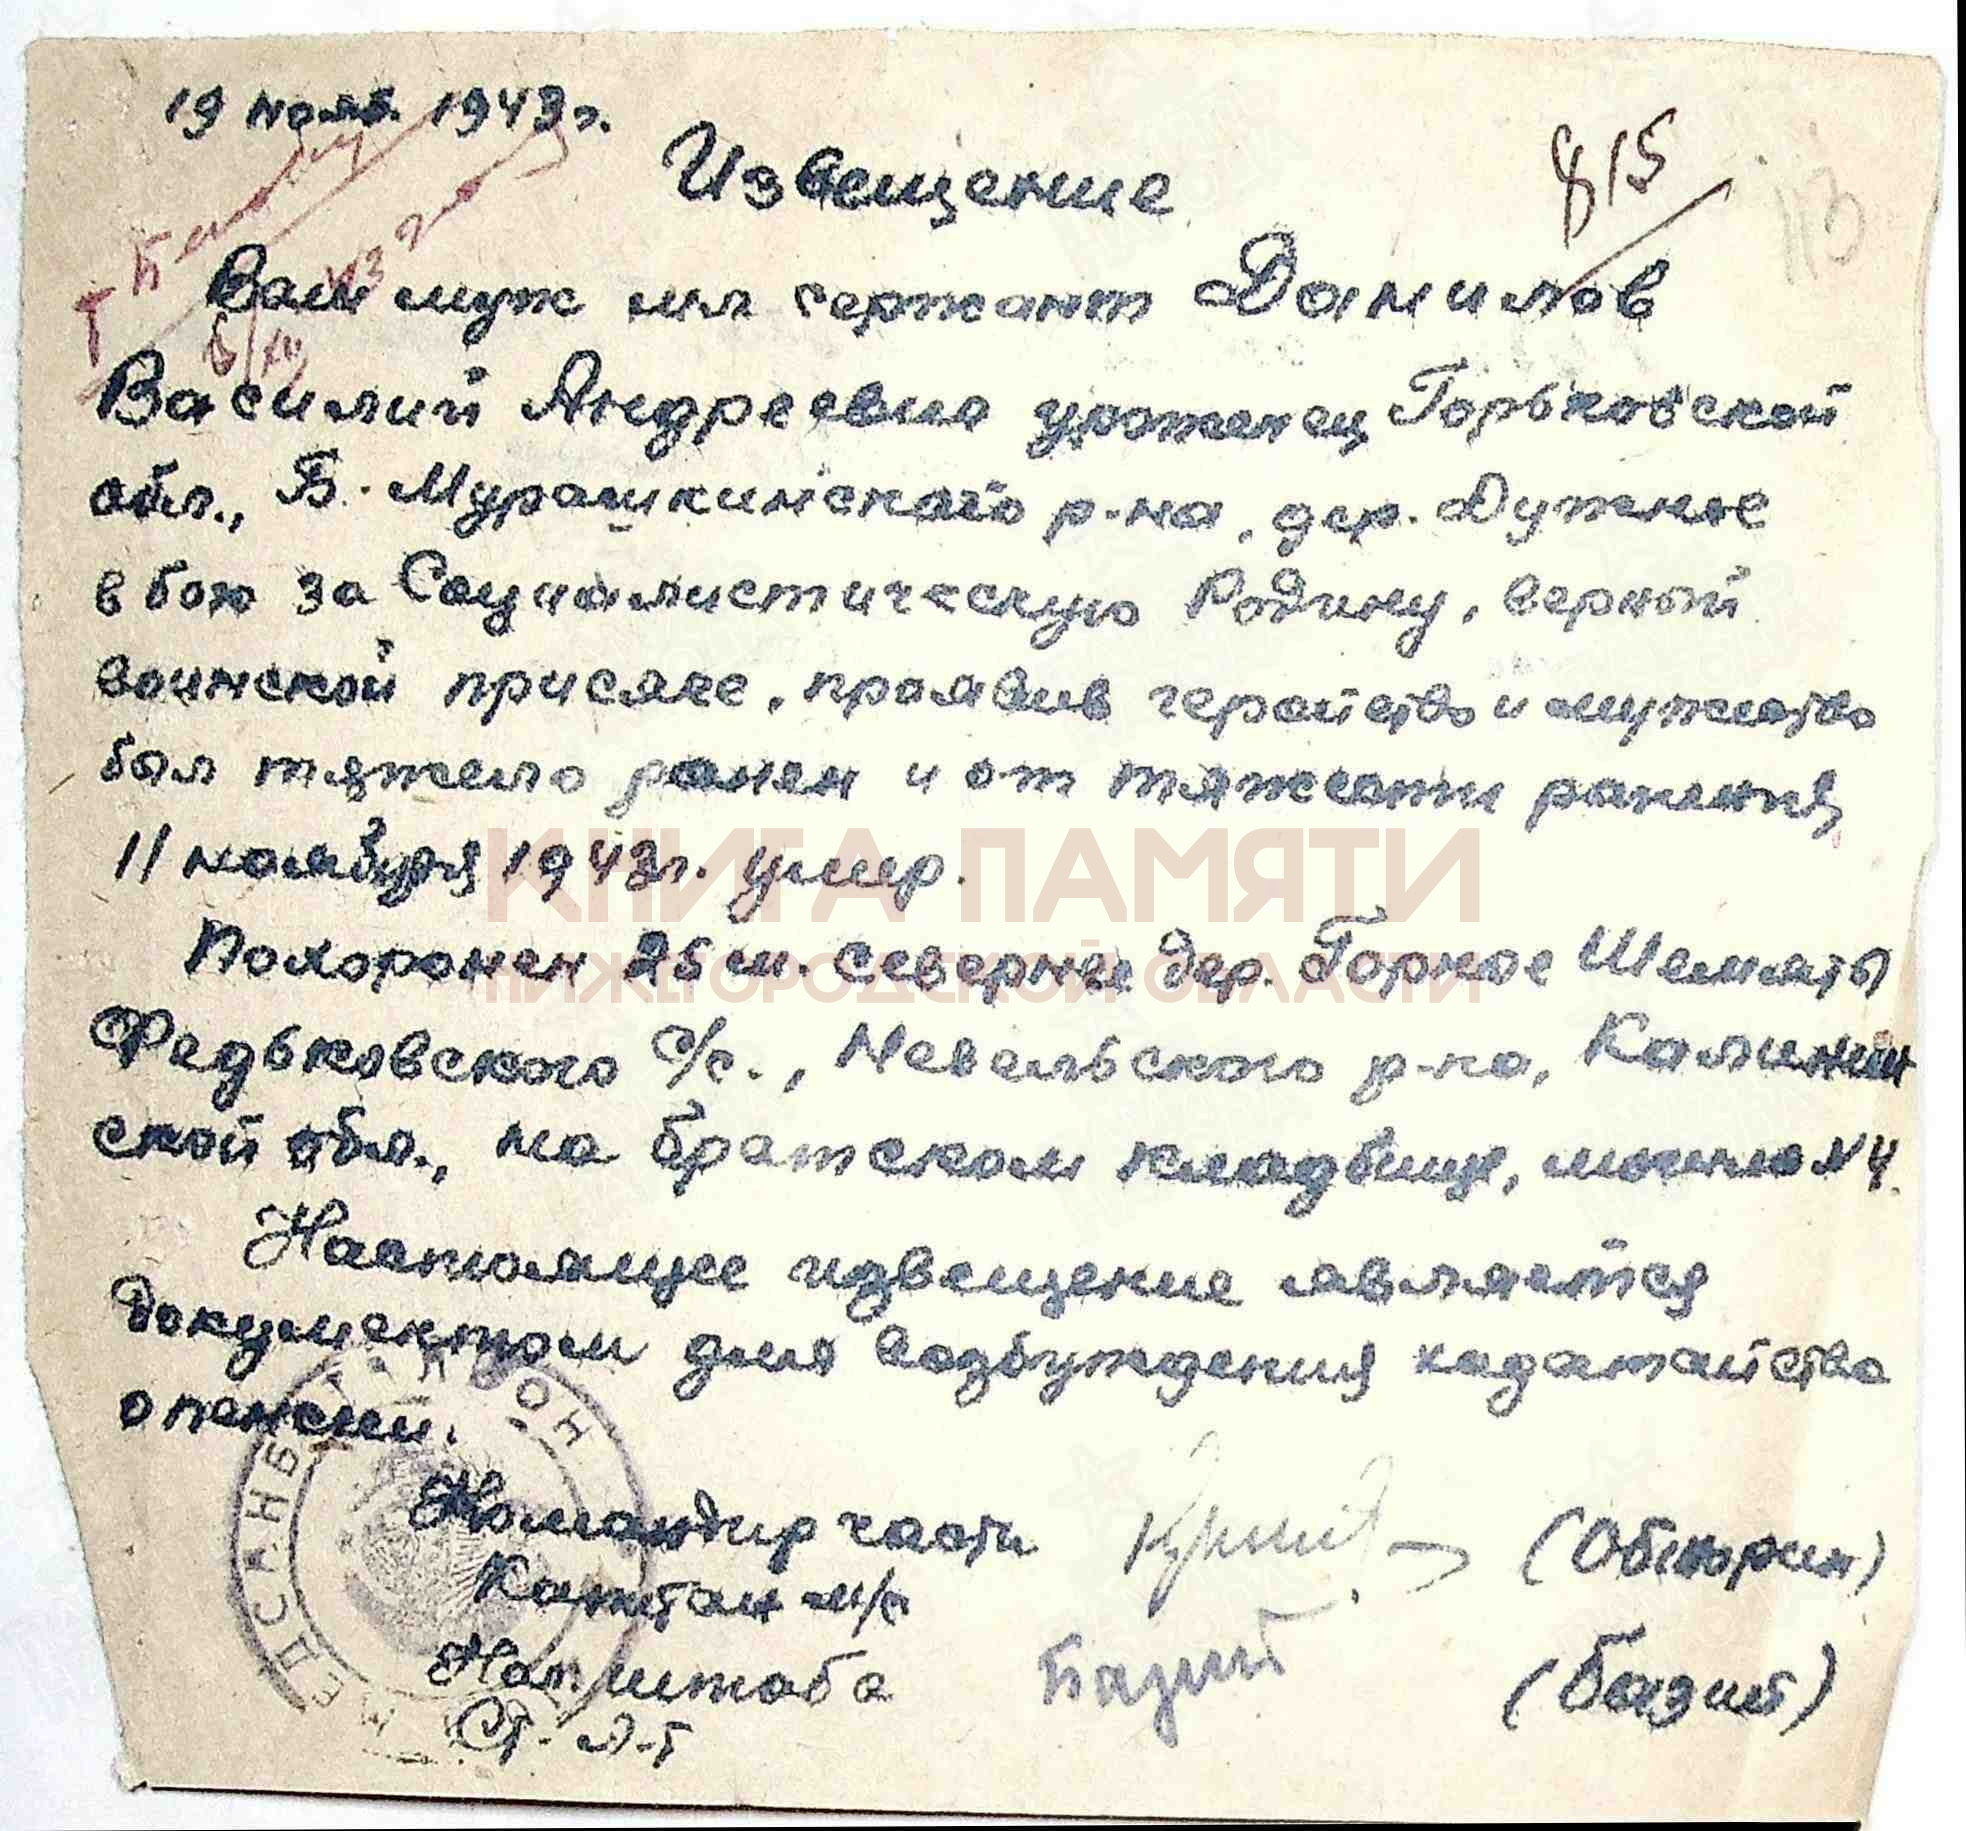 19 нояб. 1943 г.
815
113
Извещение
Ваш муж мл сержант Данилов
Василий Андреевич уроженец Горьковской
обл., Б. Мурашкинского р-на, дер.
в бою за Социалистическую Родину, верный
воинской присяге, проявив геройство и мужество
был тяжело ранен и от тяжести ранения
11 ноября 1943 г. умер.
КНИГА ПАМЯТИ
НИЖЕГОРОДСКОЙ ОБЛАСТИ
Похоронен севернее дер. Горкое
Федьковского с/с., Невельского р-на, Калинин
ской обл., на братском кладбище, могила №4.
Настоящее извещение является
документом для возбуждения ходатайства
о пенсии.
МЕДСАНБАТАЛЬОН
Командир части
Капитан м/с
Нач штаба (Базит)
Ст. л-т